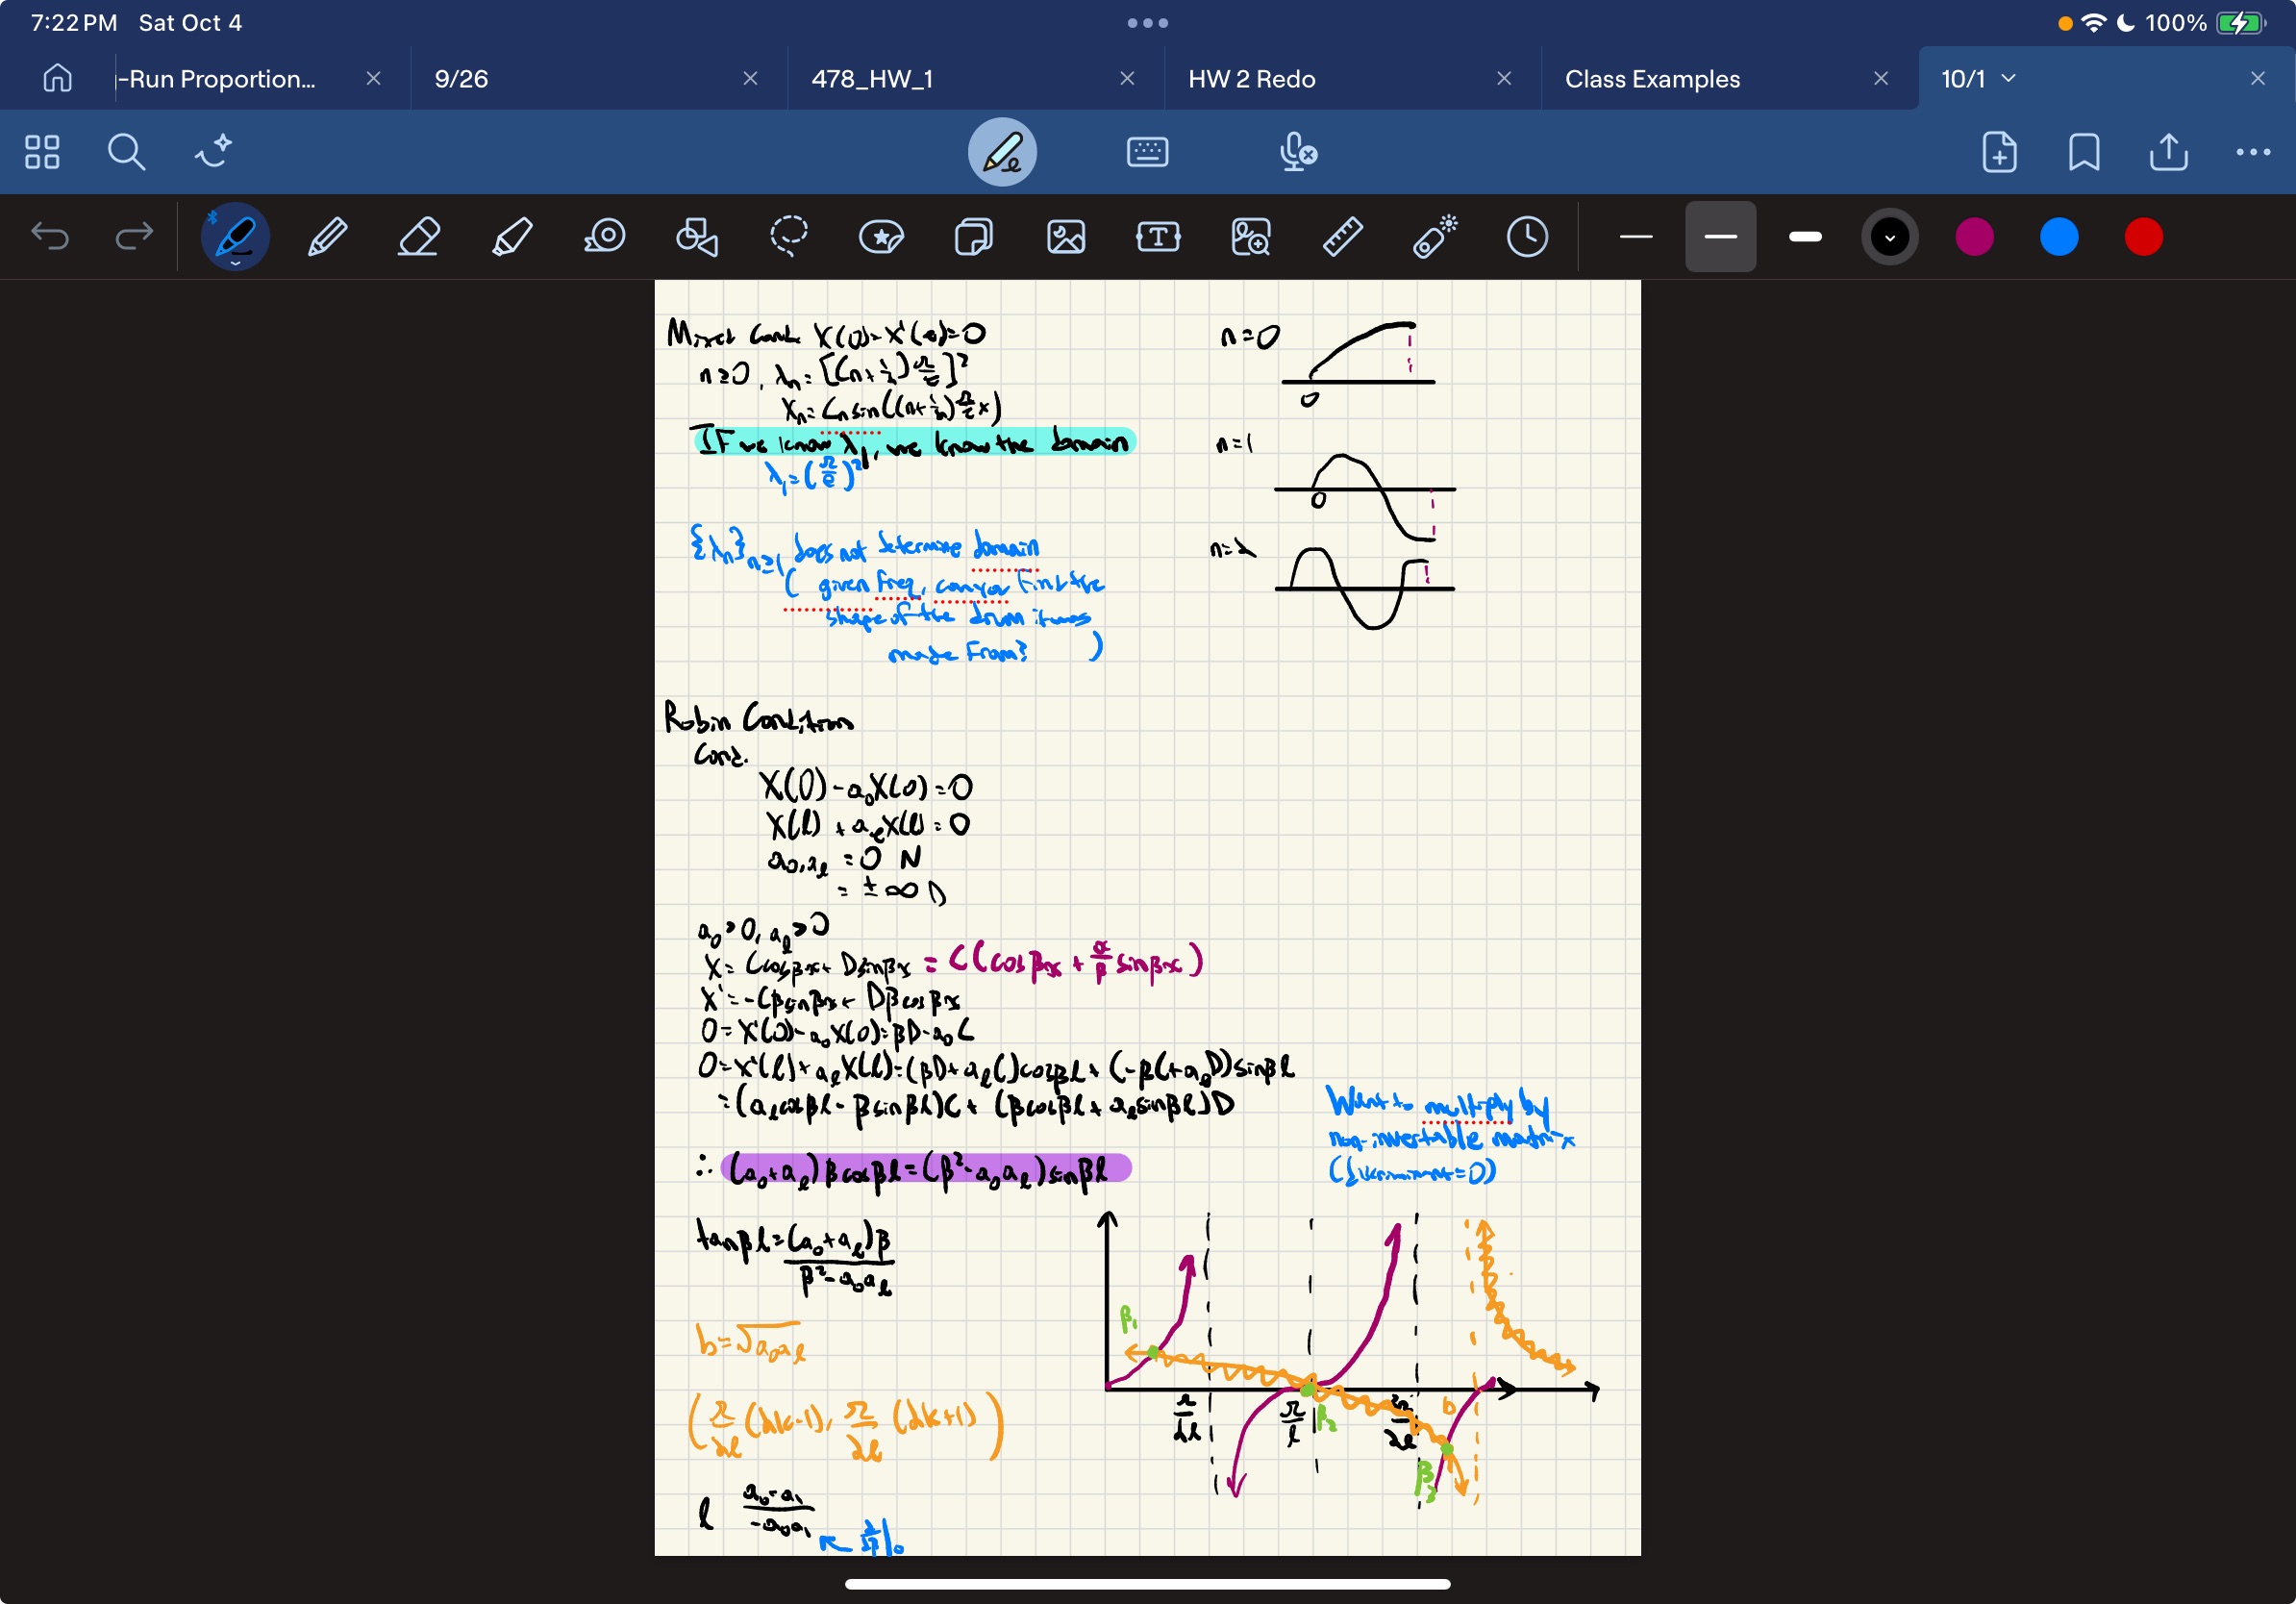 7:22 PM Sat Oct 4
100%
-Run Proportion...
9/26
478_HW_1
HW 2 Redo
Class Examples
10/1
Mixed Cond. X(0)=X'(ℓ)=0
n≥0, λn=[(n+½)π/ℓ]²
Xn=Cn sin((n+½)π/ℓ x)
IF we know λ1, we know the domain
λ1=(π/ℓ)²
{λn}n≥1 does not determine domain
(given freq, can you find the
shape of the drum it was
made from? )
n=0
0
n=1
0
n=2
Robin Condition
Cond.
X(0)-a0X(0)=0
X(ℓ)+aℓX(ℓ)=0
a0,aℓ =0 N
= ±∞ D
a0>0, aℓ>0
X=Ccosβx+Dsinβx = C(cosβx+α/β sinβx)
X'=-Cβsinβx+Dβcosβx
0=X'(0)-a0X(0)=βD-a0C
0=X'(ℓ)+aℓX(ℓ)=(βD+aℓC)cosβℓ+(-βC+aℓD)sinβℓ
=(aℓcosβℓ-βsinβℓ)C+(βcosβℓ+aℓsinβℓ)D
Want to multiply by
non-invertable matrix
(discriminant=0)
∴ (a0+aℓ)βcosβℓ=(β²-a0aℓ)sinβℓ
tanβℓ=(a0+aℓ)β/(β²-a0aℓ)
b=√a0aℓ
(π/2ℓ(2k-1), π/2ℓ(2k+1))
β1
π/2ℓ
π/ℓ
β2
b
β3
ℓ